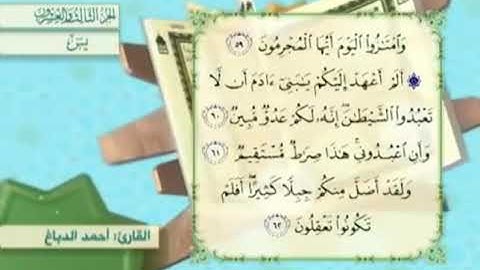 الجزء الثالث والعشرون
يس
وَامْتَازُوا الْيَوْمَ أَيُّهَا الْمُجْرِمُونَ ٥٩
أَلَمْ أَعْهَدْ إِلَيْكُمْ يَـٰبَنِىٓ ءَادَمَ أَن لَّا
تَعْبُدُوا الشَّيْطَـٰنَ ۖ إِنَّهُۥ لَكُمْ عَدُوٌّ مُّبِينٌ ٦٠
وَأَنِ اعْبُدُونِى ۚ هَـٰذَا صِرَٰطٌ مُّسْتَقِيمٌ ٦١
وَلَقَدْ أَضَلَّ مِنكُمْ جِبِلًّا كَثِيرًا ۖ أَفَلَمْ
تَكُونُوا تَعْقِلُونَ ٦٢
القارئ: أحمد الدباغ